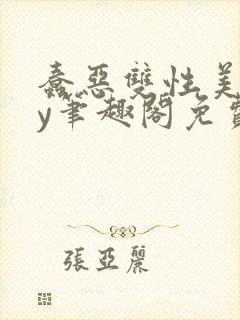 蠢惡雙性美
y筆趣閣免費
張亞麗